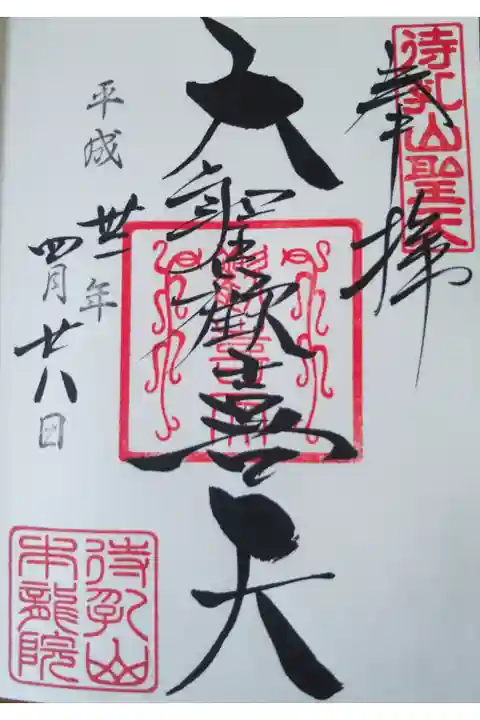 奉拝
待乳山聖天
大聖歓喜天
平成卅一年
四月廿八日
待乳山
本龍院